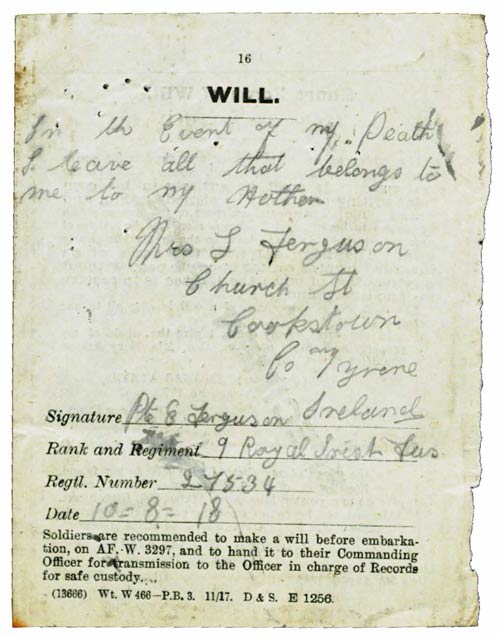 16
WILL.
In th Event of my Death
I leave all that belongs to
me to my Mother
Mrs L Ferguson
Church St
Cookstown
Co Tyrone
Signature Pte E Ferguson Ireland
Rank and Regiment 9 Royal Irish Fus
Regtl. Number 27534
Date 10=8=18
Soldiers are recommended to make a will before embarka-
tion, on AF.-W. 3297, and to hand it to their Commanding
Officer for transmission to the Officer in charge of Records
for safe custody.
(13666) Wt. W 466—P.B. 3. 11/17. D & S. E 1256.